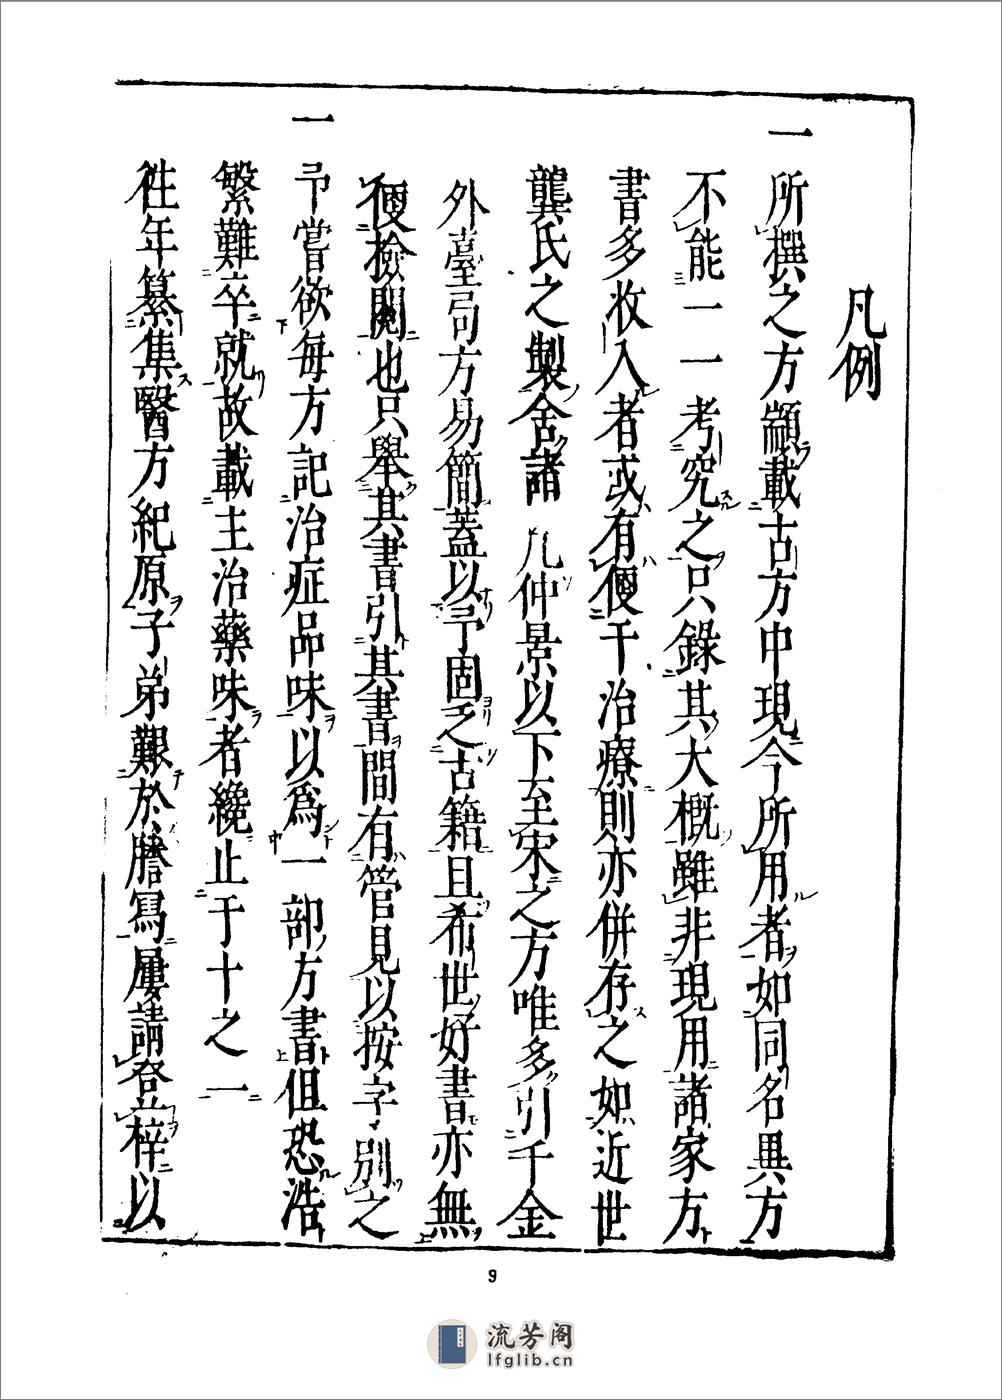 凡例
一 所撰之方顓載古方中現今所用者如同名異方
不能一一考究之只錄其大概雖非現用諸家方
書多收入者或有便于治療則亦併存之如近世
龔氏之製舍諸 凡仲景以下至宋之方唯多引千金
外臺局方易簡蓋以予固乏古籍且希世好書亦無
便檢閱也只舉其書引其書間有管見以按字別之
一 予嘗欲每方記治症品味以為一部方書但恐浩
繁難卒就故載主治藥味者纔止于十之一
往年纂集醫方紀原子弟艱於謄寫屢請登梓以
9
流芳阁
lfglib.cn